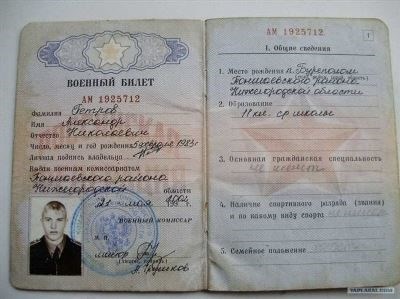 ВОЕННЫЙ БИЛЕТ
АМ 1925712
Фамилия Петров
Имя Александр
Отчество Николаевич
Число, месяц и год рождения 1983г
Личная подпись владельца
Выдан военным комиссариатом
Тоншаевского района
Нижегородской области
21
ВОЕННЫЙ КОМИССАР
М. П.
майор
АМ 1925712
1
I. Общие сведения
1. Место рождения п. Буреполом
Тоншаевского района
Нижегородской области
2. Образование
11 кл. ср школы
3. Основная гражданская специальность
не имеет
4. Наличие спортивного разряда (звания)
и по какому виду спорта не имеет
5. Семейное положение
YAPLAKAL.COM